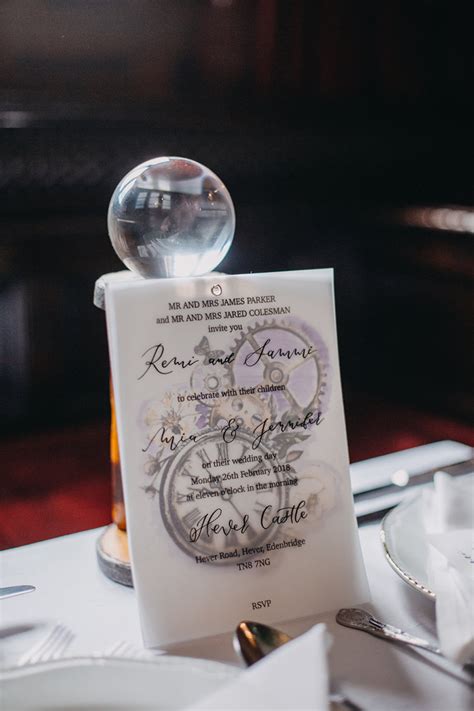 MR AND MRS JAMES PARKER
and MR AND MRS JARED COLESMAN
invite you
Remi and Sammi
to celebrate with their children
Mia & Jennifer
on their wedding day
Monday 26th February 2018
at eleven o'clock in the morning
Hever Castle
Hever Road, Hever, Edenbridge
TN8 7NG
RSVP